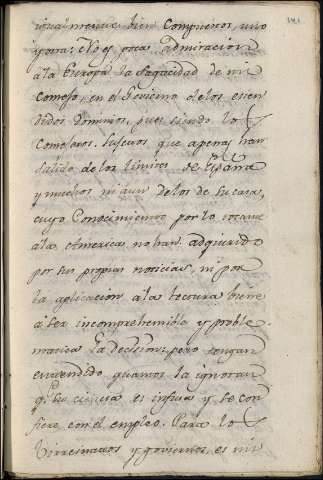 igualmente bien Compuestos, uno
y otro; Esto es poca admiracion
a la Europa la Sagacidad de mi
Consejo, en el Govierno de los esten
didos Dominios, pues siendo lo
Consejeros. Sujetos que apenas han
Salido de los limites de España
y muchos ni aun de los de su casa,
cuyo Conocimiento por lo tocante
a la America, no han adquirido
por sus propias noticias, ni por
la aplicacion a la lectura viene
a ser incomprehensible y proble
matica la decision; pero tengan
entendido quantos la ignoran
q.e su ciencia es infusa y se con
fiere con el empleo. Para lo
Virreinatos y goviernos, es mi